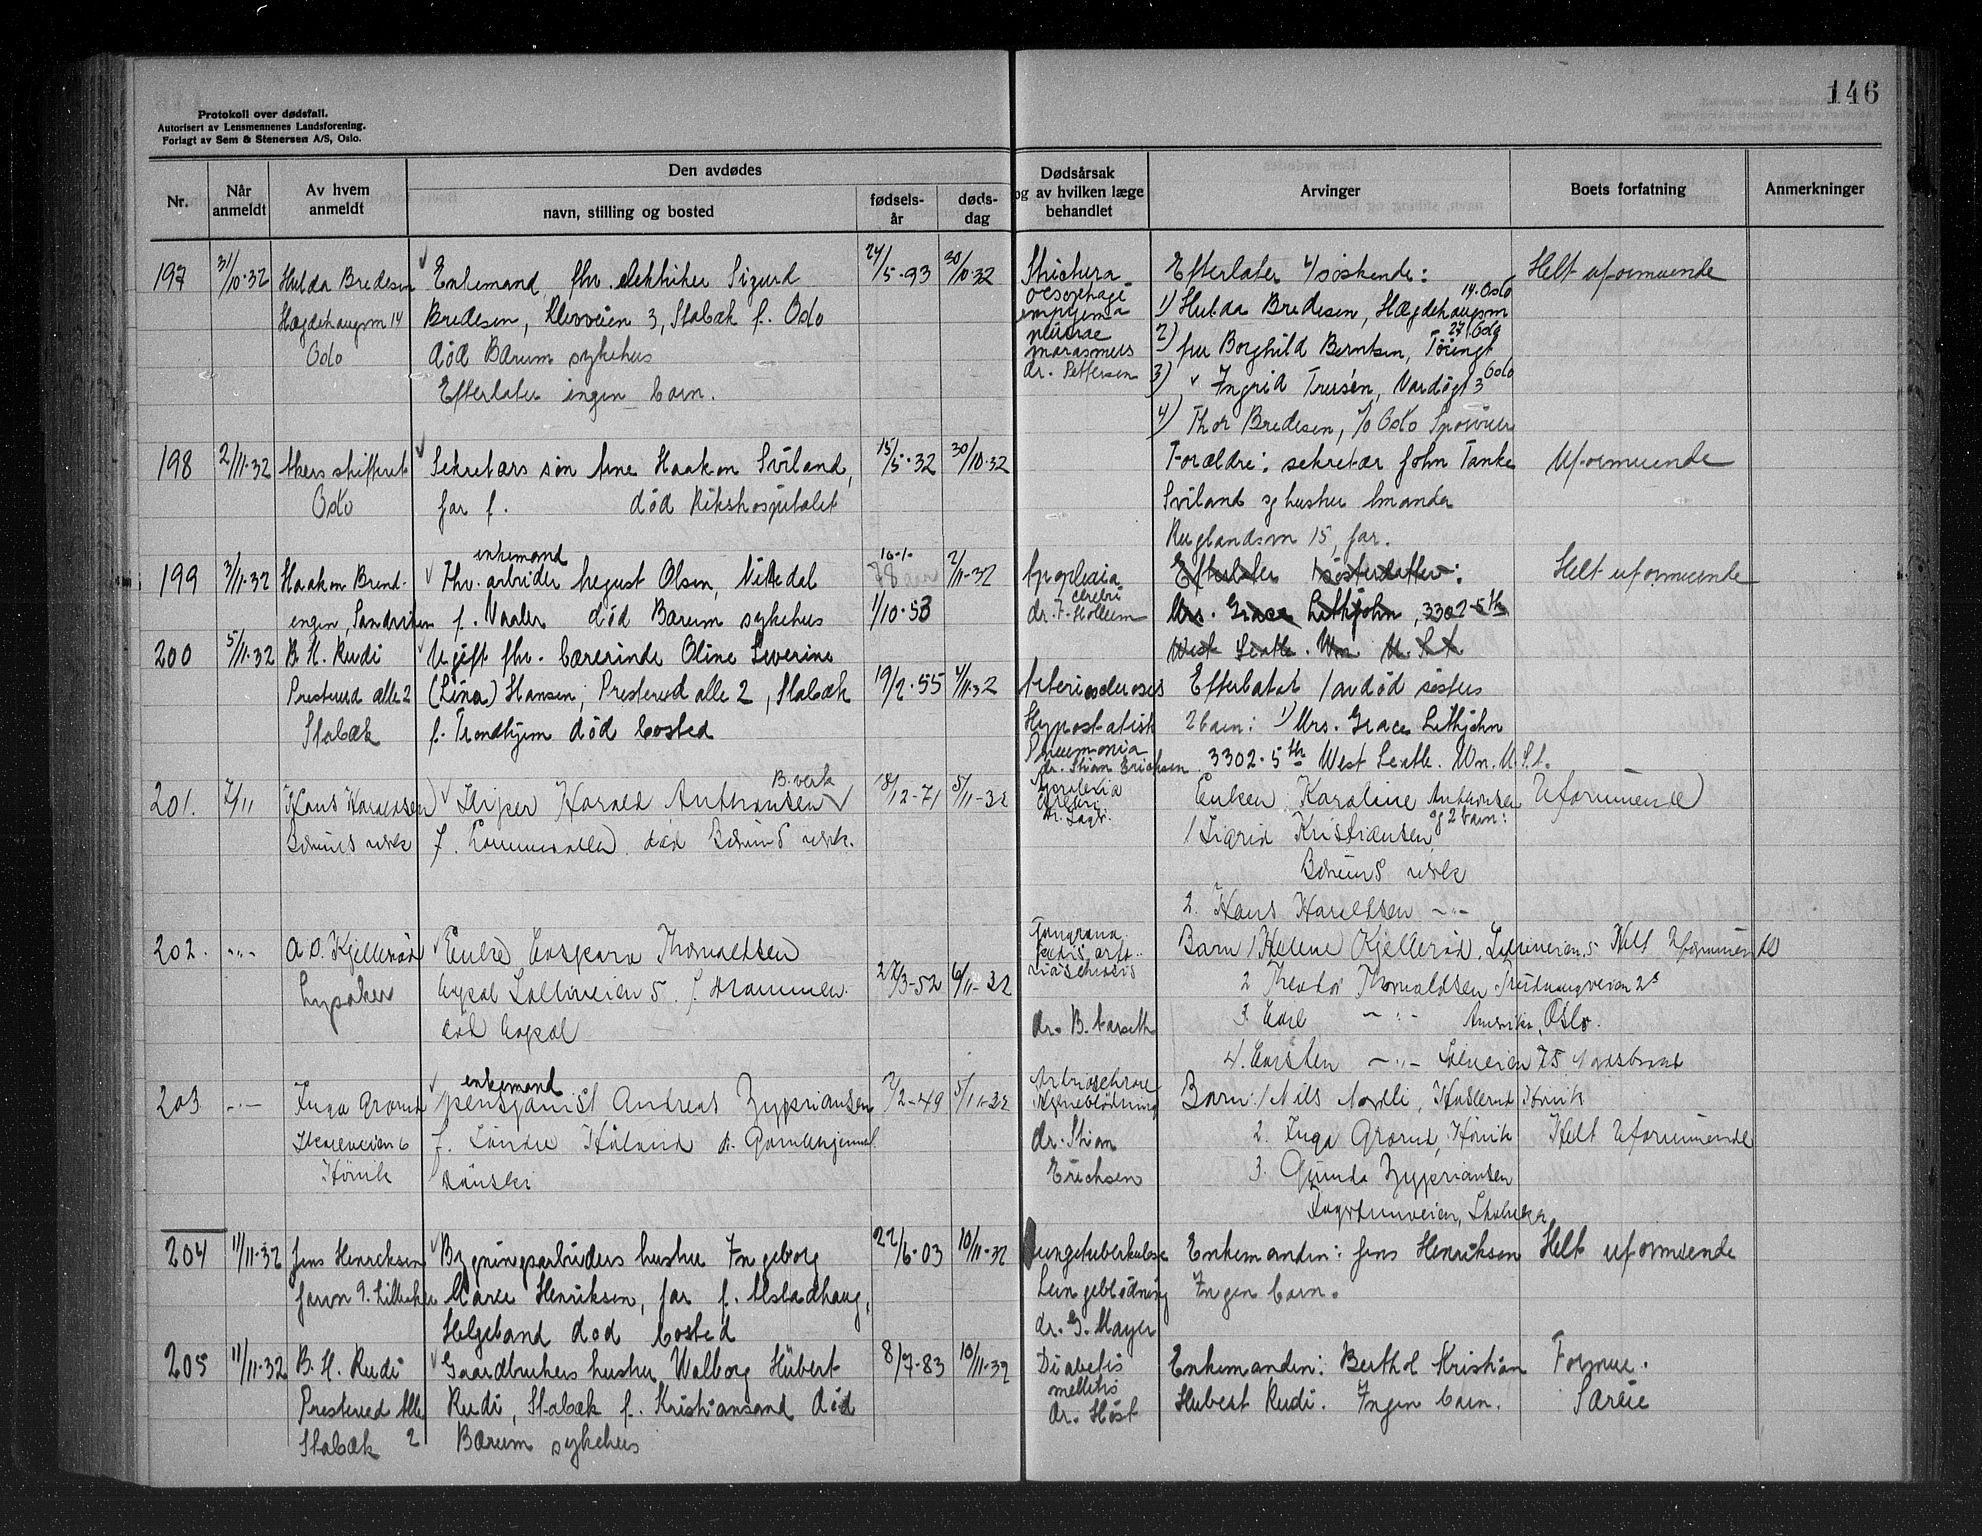 146
Protokoll over dødsfall.
Autorisert av Lensmennenes Landsforening.
Forlagt av Sem & Stenersen A/S, Oslo.
Nr.
Når anmeldt
Av hvem anmeldt
Den avdødes
navn, stilling og bosted
fødselsår
dødsdag
Dødsårsak
og av hvilken læge
behandlet
Arvinger
Boets forfatning
Anmerkninger
197 31/10-32 Hulda Bredesen Enkemand, fhv. elektriker Sigurd 24/5-93 30/10-32 Strictura Efterlater 4 søskende: Helt uformuende
Hægdehaugsvn 14 Bredesen, Kleivveien 3, Stabæk f. Oslo oesophagi empyema 1) Hulda Bredesen, Hægdehaugsvn 14. Oslo
Oslo død Bærum sykehus pleurae marasmus 2) fru Borghild Berntsen, 27 Oslo
Efterlater ingen barn. dr. Pettersen 3) " Ingrid Trulsen, Vardøgt 3 Oslo
4) Thor Bredesen, c/o Oslo Sporveier
198 2/11-32 Akers skifteret Sekretærs søn Arne Haakon Sviland, 15/5-32 30/10-32 Forældre: sekretær John Tanke Uformuende
Oslo Jar f. død Rikshospitalet Sviland og hustru Amanda
Ruglandsvn 15, Jar.
199 3/11-32 Haakon Brend- Fhv. enkemand arbeider August Olsen, Nittedal 16-1- 2/11-32 Apoplexia Efterlater 1 søsterdatter: Helt uformuende
engen, Sandviken f. Vaaler død Bærum sykehus 1/10-53 cerebri dr. F. Hollum Mrs. Grace Lithjohn, 3302-5th
200 5/11-32 B. H. Rudi Ugift fhv. lærerinde Oline Severine West Seatle. Wn. U.S.A
Presterud alle 2 (Lina) Hansen, Presterud alle 2, Stabæk 19/2-55 4/11-32 Arteriosclerosis Efterlatt 1 avdød søsters
Stabæk f. Trondhjem død bosted Hypostatisk 2 barn: 1) Mrs. Grace Lithjohn
Pneumonia dr. Stian Erichsen 3302-5th West Seatle. Wn. U.S.A.
201. 7/11 Hans Haraldsen Sliper Harald Anthonsen B. verk 18/12-71 5/11-32 Apoplexia cerebri Enken Karoline Anthonsen og 2 barn: Uformuende
Bærums verk f. død Bærums verk. 1 Sigrid Kristiansen,
Bærums verk
2. Hans Haraldsen -"-
202. -"- A. O. Kjellerød Enke Caspara Thorvaldsen Gangræna pedis Barn 1 Helene Kjellerød, Lilleveien 5 Helt uformuende
Lysaker Lysak. Lilleveien 5. f. Drammen. 27/3-52 6/11-32 2 Theodor Thorvaldsen
død Lysak. dr. B. 3 Carl -"- Amerika, Oslo.
4. Carsten -"-
203 -"- Inga Grorud enkemand pensjonist Andreas Zypriansen 7/2-49 5/11-32 Arteriosclerose Hjerneblødning Barn: 1 Nils Nordli, Haslerud Høvik
Høvik f. Søndre Høland d. Gamlehjemmet dr. Stian 2. Inga Grorud, Høvik Helt uformuende
Dønski Erichsen 3. Gunda Zypriansen
204 11/11-32 Jens Henriksen Bygningsarbeiders hustru Ingeborg 22/6-03 10/11-32 Lungetuberkulose Enkemanden: Jens Henriksen Helt uformuende
Jarvn 9. Lilleaker Marie Henriksen, Jar f. Alstadhaug, Lungeblødning Ingen barn.
Helgeland død bosted dr. G. Mayer
205 11/11-32 B. H. Rudi Gaardbrukers hustru Valborg Hubert 8/7-83 10/11-32 Diabetis Enkemanden: Berthol Kristian Formue.
Presterud Alle Rudi, Stabæk f. Kristiansand død mellitis Hubert Rudi. Ingen barn. Særeie
Stabæk 2 Bærum sykehus dr. Høst